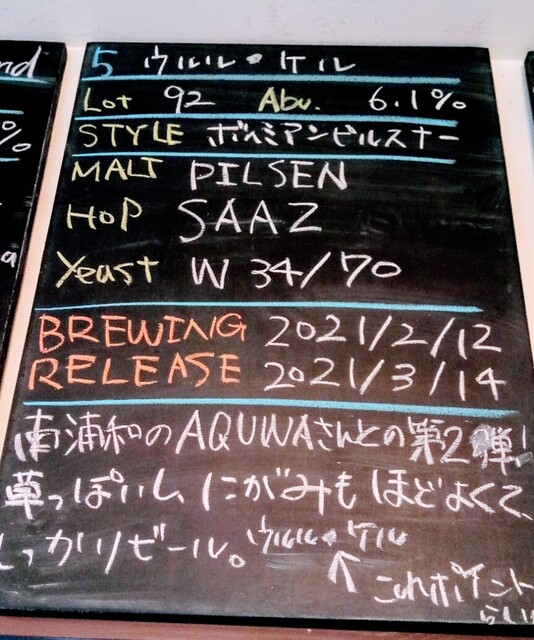 5 ウルル・ケル
Lot 92 Abv. 6.1%
STYLE ボヘミアンピルスナー
MALT PILSEN
HOP SAAZ
Yeast W 34/70
BREWING 2021/2/12
RELEASE 2021/3/14
南浦和のAQUWAさんとの第2弾!
草っぽいし、にがみもほどよくて、
しっかりビール。ウルル・ケル
↑これポイント
らしい
nd
%
a